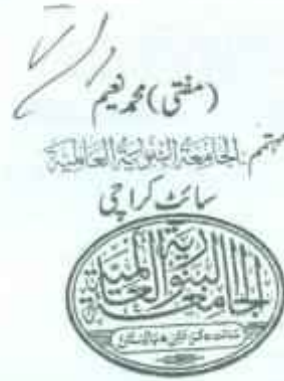 (مفتی) محمد نعیم
مہتمم الجامعة البنورية العالمية
سائٹ کراچی
الجامعة البنورية العالمية